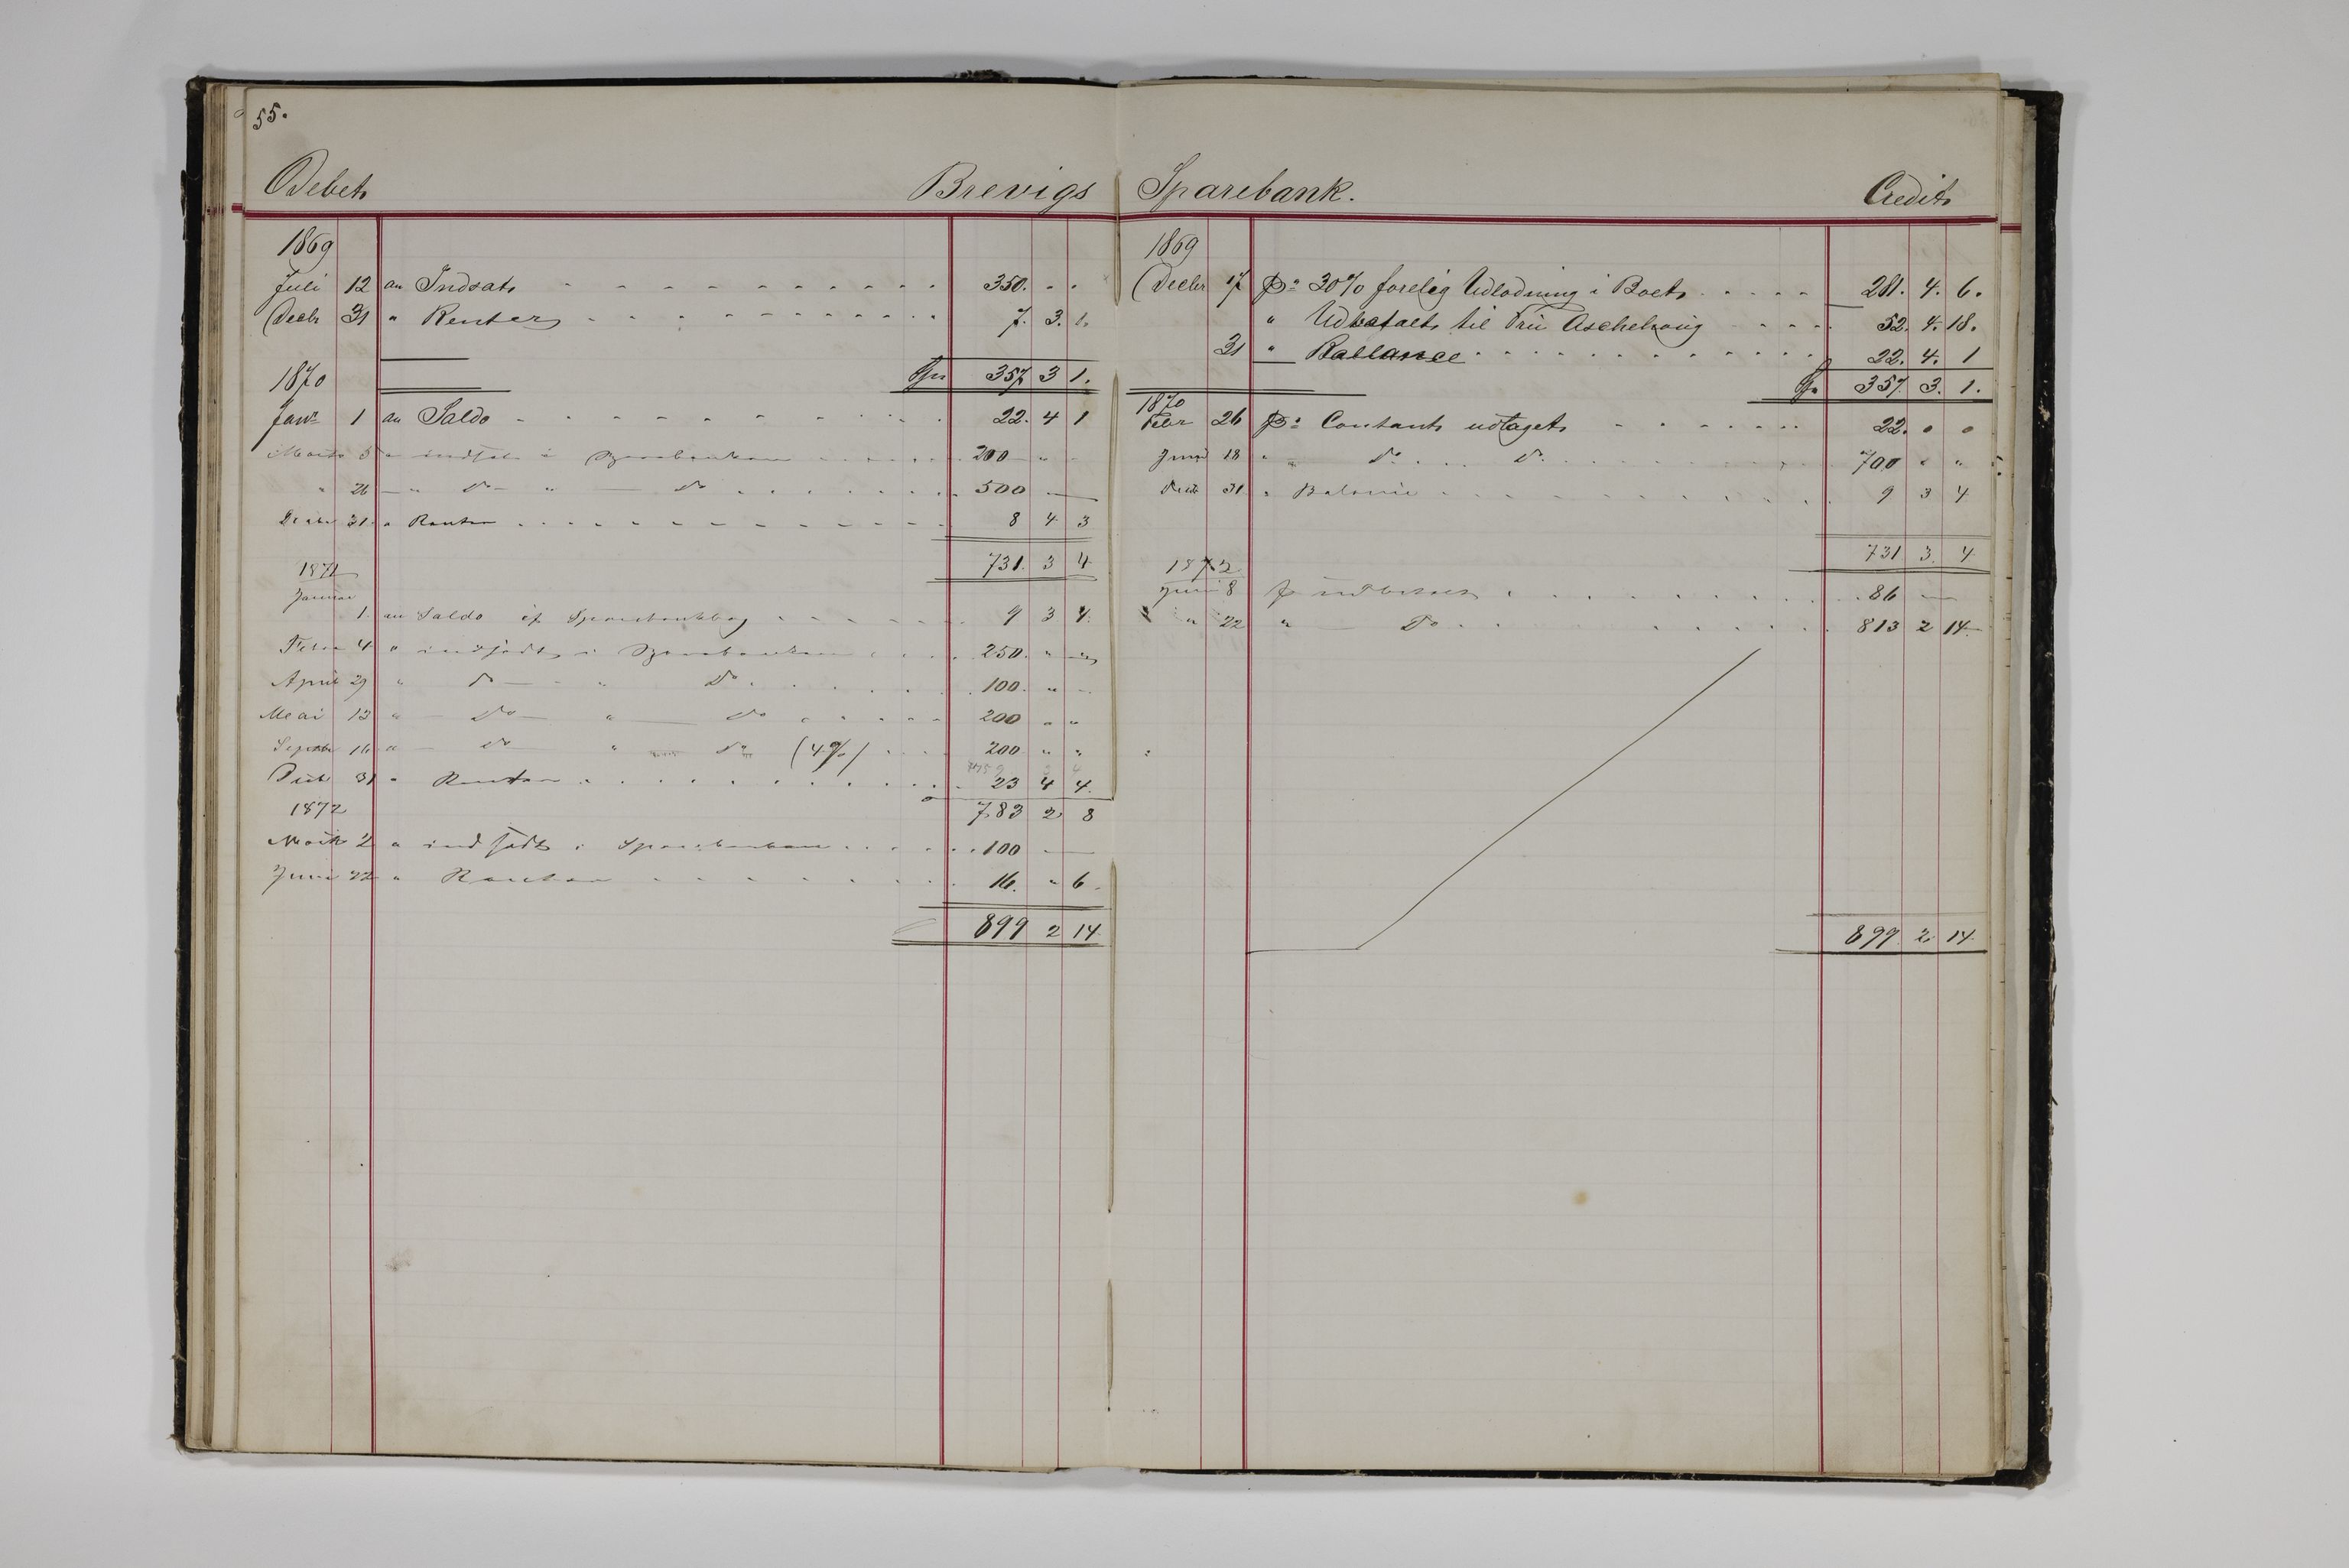 55.
Debet Brevigs Sparebank. Credit
1869
Juli 12 an Indsats 350. " "
Decbr 31 " Renter 7. 3. 1.
Spr 357 3 1.
1870
Janr 1 an Saldo 22. 4 1
Marts 5 " indsat i Sparebanken 200 " "
" 26 " Do " Do 500
Decbr 31 " Renter 8 4 3
731. 3 4
1871
Januar
1. an Saldo if Sparebankbog 9 3 4.
Febr 4 " indsadt i Sparebanken 250. " "
April 29 " Do " Do 100. " "
Mai 13 " Do " Do 200 " "
Septbr 16 " Do " Do (4%) 200 " "
Decb 31 " Renter 23 4 4.
1872
783 2 8
Marts 2 " indsadt i Sparebanken 100
Juni 22 " Renter 16. " 6.
899 2 14
1869
Decbr 17 pr 30% foreløg Udlodning i Boet 281. 4. 6.
" Udbetalt til Fru Aschehoug 52. 4. 18.
31 " Ballance 22. 4. 1
Sp. 357. 3. 1.
1870
Febr 26 pr Contant udtaget 22. " "
Juni 18 " " Do Do 700 " "
Decbr 31 " Balance 9 3 4
731 3. 4
1872
Juni 8 pr udbetalt 86
" 22 " Do 813 2 14
899. 2 14